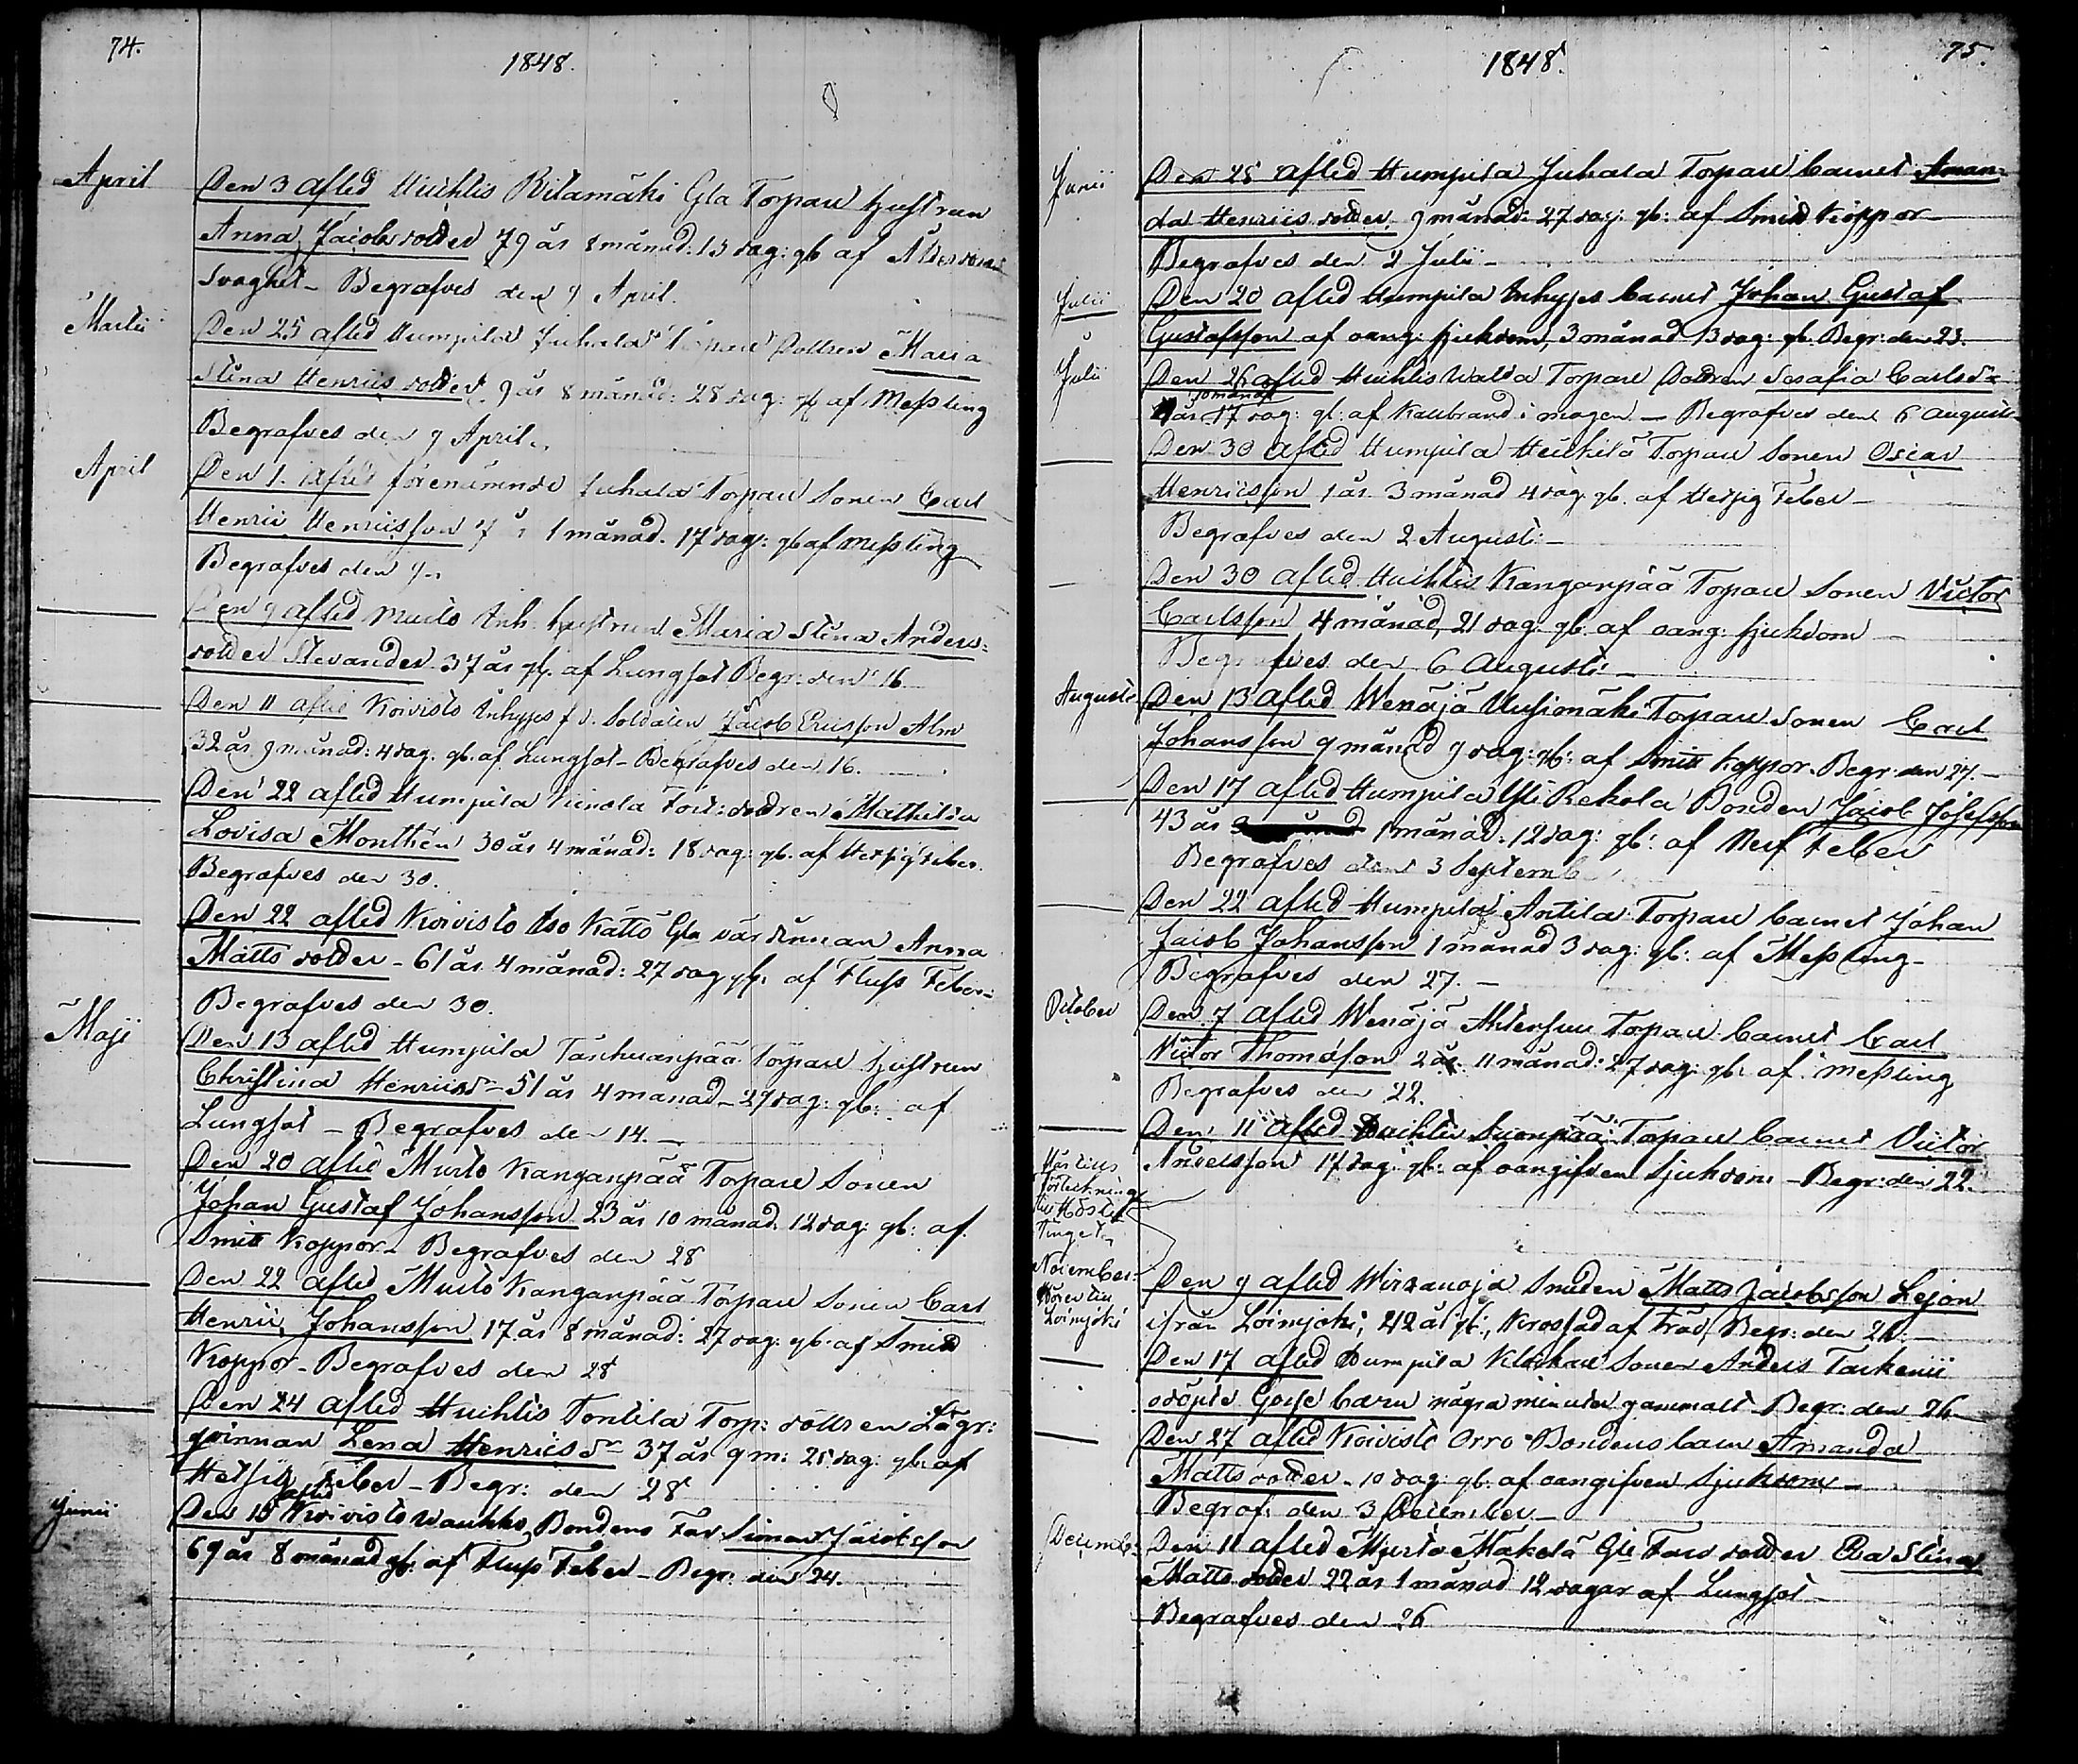 74.
1848.
April Den 3 afled Huhtis Ritamäki Gla Torpare hustrun
Anna Jacobsdotter 79 år 8 månad: 13 dag: gl af Ålderdoms
svaghet - Begrafves den 9 April.
Martii Den 25 afled Humpila Juhala Torpare Dottren Maria
Stina Henricsdotter 9 år 8 månad: 28 dag: gl af Messling
Begrafves den 9 April.
April Den 1. afled förenämnde Juhala Torpare Sonen Carl
Henric Henricsson 7 år 1 månad. 17 dag: gl af Messling
Begrafves den 9.
Den 9 afled Murto Inh. hustrun Maria Stina Anders:
dotter Stevander 37 år gl. af Lungsot Begr: den 16.
Den 11 afled Koivisto Inhyses f.d. Soldaten Jacob Ericsson Alm
32 år 9 månad: 4 dag. gl. af Lungsot - Begrafves den 16.
Den 22 afled Humpila dottren Mathilda
Lovisa Monthén 30 år 4 månad: 18 dag: gl. af Hetsig feber.
Begrafves den 30.
Den 22 afled Koivisto Iso Kättö Gla värdinnan Anna
Mattsdotter - 61 år 4 månad: 27 dag gl: af Fluss Feber
Begrafves den 30.
Maji Den 13 afled Humpila Torpare hustrun
Christina Henricsdr 51 år 4 månad - 29 dag: gl: af
Lungsot - Begrafves den 14.
Den 20 afled Murto Kanganpää Torpare Sonen
Johan Gustaf Johansson 23 år 10 månad. 12 dag: gl: af
Smitt Koppor - Begrafves den 28
Den 22 afled Murto Kanganpää Torpare Sonen Carl
Henric Johansson 17 år 8 månad: 27 dag: gl: af Smitt
Koppor - Begrafves den 28
Den 24 afled Huhtis Tontila Torp: dottren Lägr:
qvinnan Lena Henricsdr 37 år 9 m: 25 dag: gl: af
Hetsig feber - Begr: den 28
Junii Den 15 afled Koivisto Waukko Bondens Far Simon Jacobsson
69 år 8 månad gl: af Fluss Feber - Begr: den 24.
1848.
75.
Junii Den 25 afled Humpila Juhala Torpare barnet Aman-
da Henricsdotter, 9 månad: 27 dag: gl: af Smitt Koppor
Begrafves den 2 Julii -
Julii Den 20 afled Humpila Inhyses barnet Johan Gustaf
Gustafsson af oang: sjukdom, 3 månad 13 dag: gl. Begr: den 23.
Julii Den 26 afled Huhtis Walda Torpare Dottren Serafia Carlsdr
10 månad
år 17 dag: gl: af Kallbrand i magen - Begrafves den 6 Augusti
Den 30 afled Humpila Heikilä Torpare Sonen Oscar
Henricsson 1 år 3 månad 4 dag gl. af Hetsig Feber -
Begrafves den 2 Augusti -
Den 30 afled Huhtis Kanganpää Torpare Sonen Victor
Carlsson 4 månad, 21 dag: gl. af oang: sjukdom -
Begrafves den 6 Augusti -
Augusti Den 13 afled Wenäjä Uusimäki Torpare Sonen Carl
Johansson 9 månad 9 dag: gl: af Smitt koppor. Begr: den 27. -
Den 17 afled Humpila Yli Rekola Bonden Jacob Josefsson
43 år 1 månad. 12 dag: gl: af Nerf Feber
Begrafves den 3 Septemb
Den 22 afled Humpila Antila Torpare barnet Johan
Jacob Johansson 1 månad 3 dag: gl: af Messling -
Begrafves den 27. -
October Den 7 afled Wenäjä Torpare barnet Carl
Victor Thomasson 2 år 11 månad: 27 dag: gl: af Messling
Begrafves den 22.
Den 11 afled Torpare barnet Victor
Andersson 17 dag: gl: af oangifven Sjukdom - Begr: den 22.
Härtills
Förteckning
till Höste
tinget
November Den 9 afled Wirranoja Smeden Matts Jacobsson Lejon
Loimjoki
ifrån Loimjoki, 42 år gl:, Krossad af Träd, Begr: den 26. -
Den 17 afled Humpila Klockare Sonen Anders Tackenii
odöpte Gosse barn några minuter gammalt Begr: den 26 -
Den 27 afled Koivisto Orro Bondens barn Amanda
Mattsdotter - 10 dag: gl. af oangifven Sjukdom -
Begraf: den 3 December -
Decemb: Den 11 afled Murto Mäkelä Gle Fars dotter Eva Stina
Mattsdotter 22 år 1 månad 12 dagar af Lungsot
Begrafves den 26